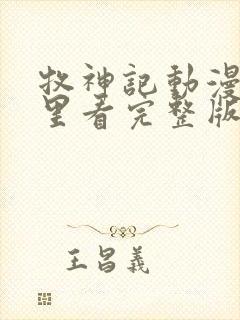 牧神記動漫
里看完整版
王昌義